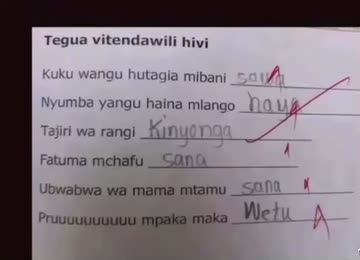 Tegua vitendawili hivi
Kuku wangu hutagia mibani sawa
Nyumba yangu haina mlango haya
Tajiri wa rangi Kinyonga
Fatuma mchafu sana
Ubwabwa wa mama mtamu sana
Pruuuuuuuuuu mpaka maka Wetu